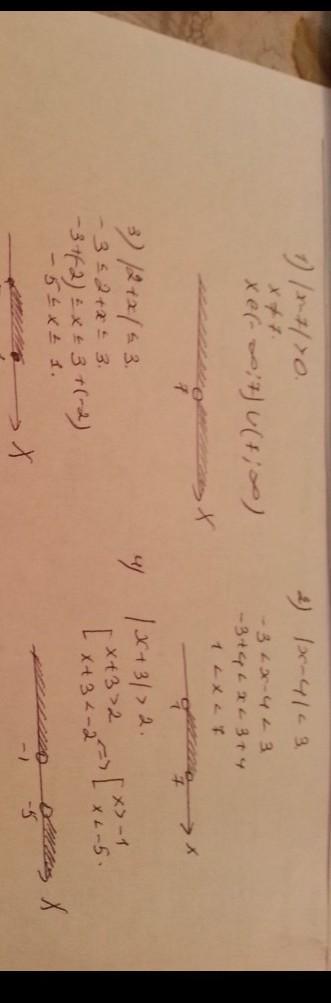 1) |x-7|>0.
x≠7.
x∈(-∞;7)∪(7;∞)
7 X
2) |x-4|<3
-3<x-4<3
-3+4<x<3+4
1<x<7
1 7 x
3) |2+x|≤3.
-3≤2+x≤3.
-3+(-2)≤x≤3+(-2)
-5≤x≤1.
X
4) |x+3|>2.
[x+3>2 <=> [x>-1
[x+3<-2 [x<-5.
-1 -5 X